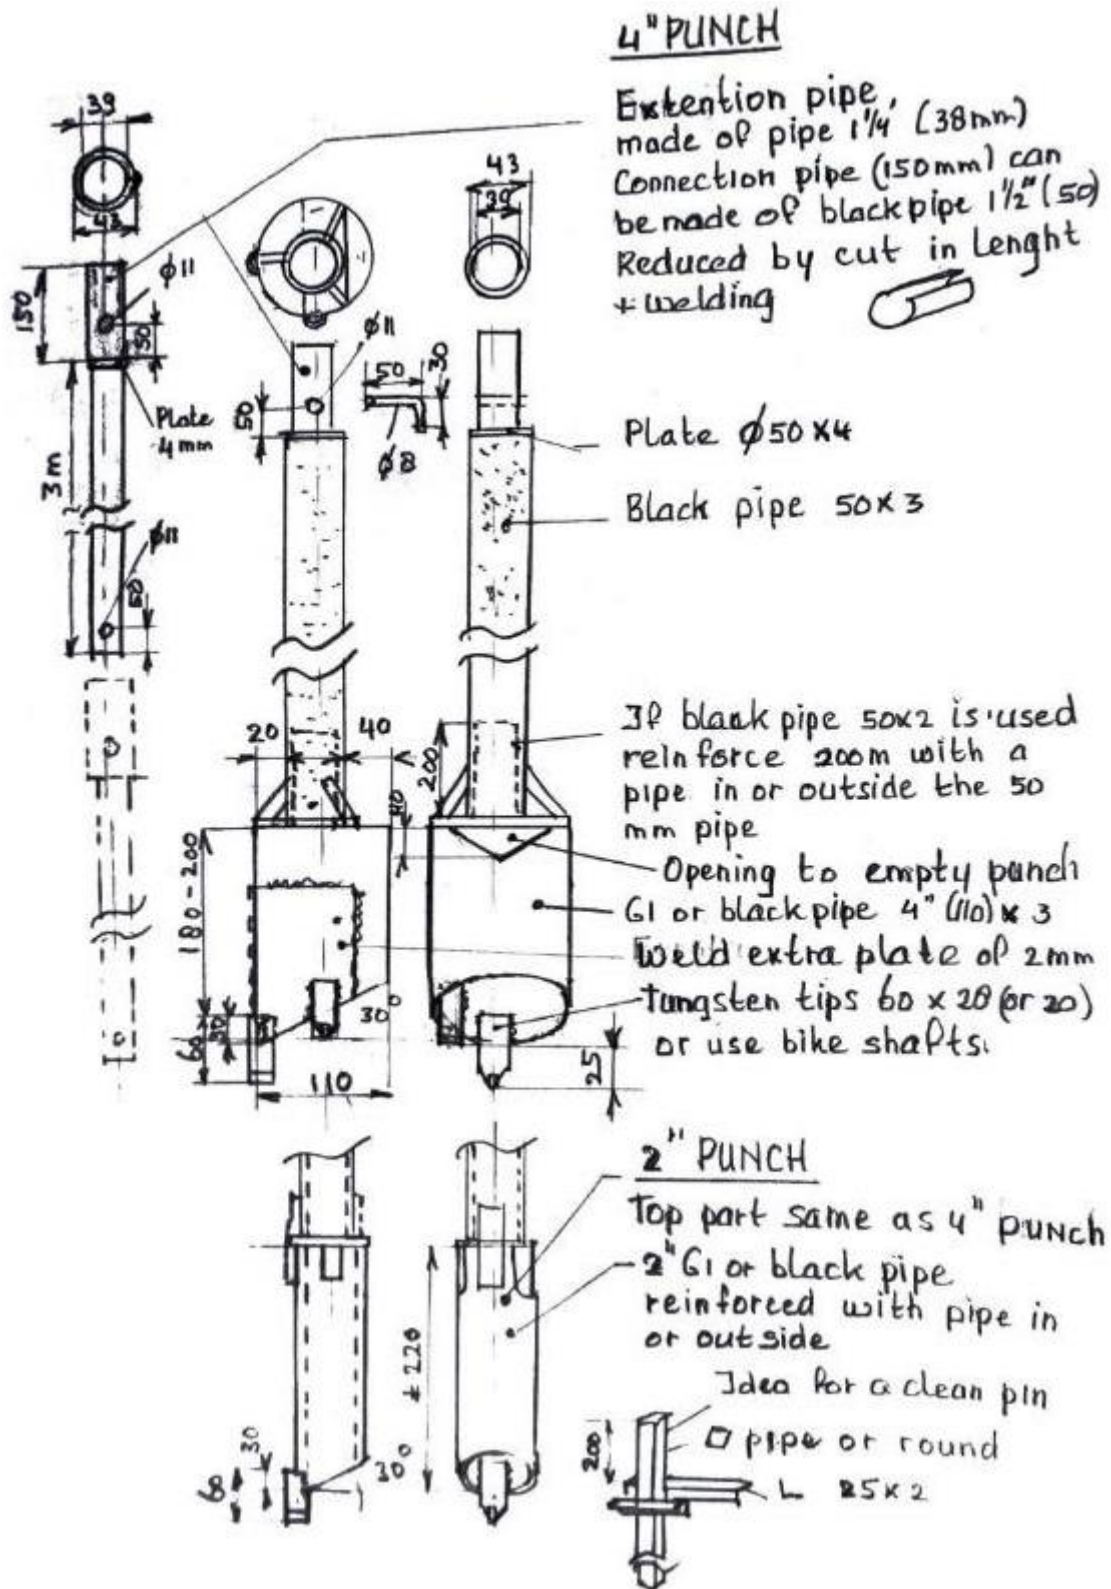 4" PUNCH
Extention pipe
made of pipe 1 1/4' (38mm)
Connection pipe (150mm) can
be made of blackpipe 1 1/2" (50)
Reduced by cut in Lenght
+ welding
39
43
ø11
150
50
Plate
4mm
3m
ø11
50
ø11
50
50
30
ø8
43
39
Plate ø50 x 4
Black pipe 50 x 3
20
40
200
40
180-200
30
60
30°
110
25
If blank pipe 50x2 is used
reinforce 200m with a
pipe in or outside the 50
mm pipe
Opening to empty punch
GI or black pipe 4" (110) x 3
Weld extra plate of 2mm
Tungsten tips 60 x 20 (or 20)
or use bike shafts.
2" PUNCH
Top part same as 4" punch
2" GI or black pipe
reinforced with pipe in
or outside
± 220
30
60
30°
Idea for a clean pin
□ pipe or round
200
L 25 x 2